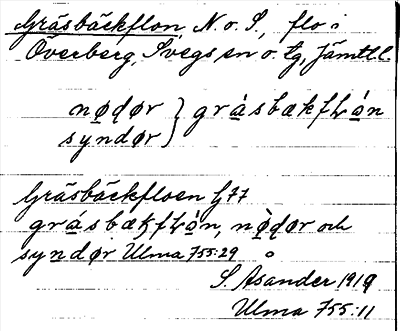 Gräsbäckflon, N. o. S., flo i
Överberg, Svegs sn o. tg, Jämtl. l.
nọdọr } grásbækfⱢȧn
syndọr
Gräsbäckfloen G77
grásbækfⱢȧn, nọ̀dọr och
syndọr Ulma 755:29
S. Asander 1919
Ulma 755:11